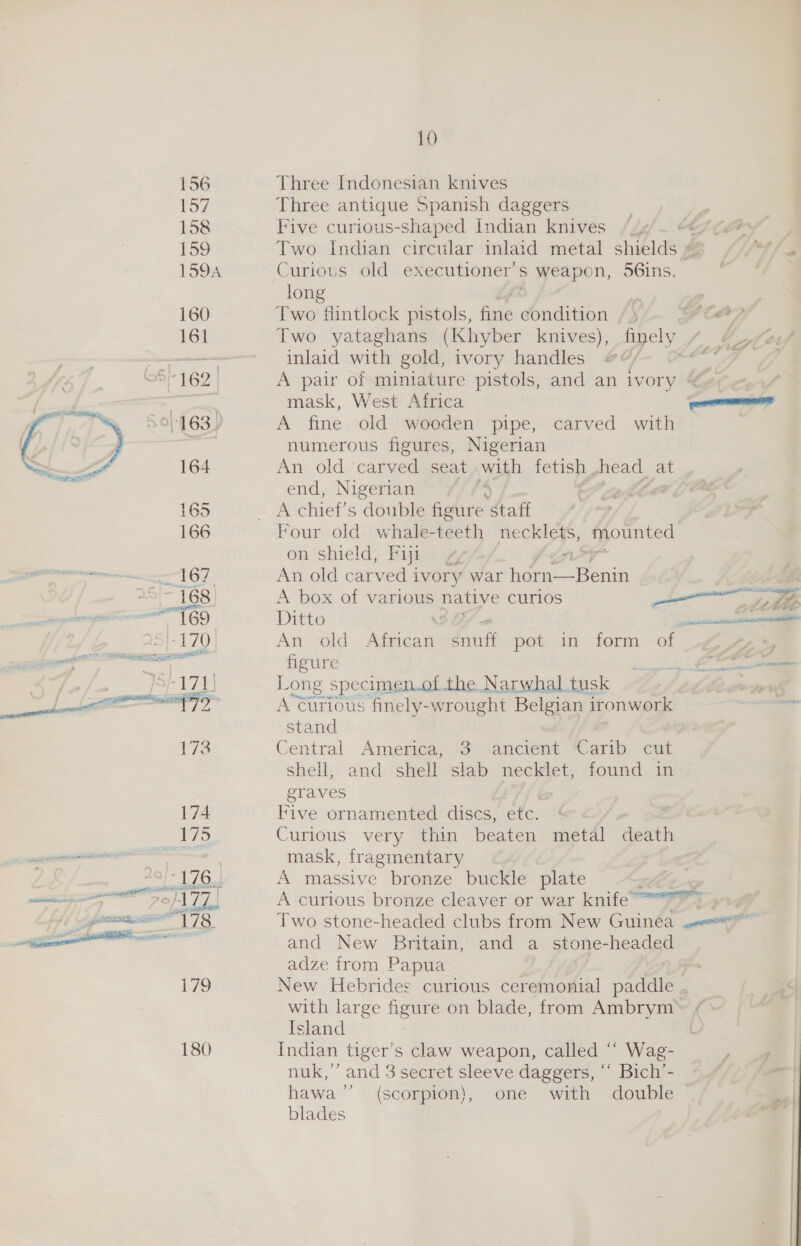 10
156 Three Indonesian knives
157 Three antique Spanish daggers
158 Five curious-shaped Indian knives
159 Two Indian circular inlaid metal shields
159A Curious old executioner's weapon, 56ins.
long
160 Two flintlock pistols, fine condition
161 Two yataghans (Khyber knives), finely
inlaid with gold, ivory handles
162 A pair of miniature pistols, and an ivory
mask, West Africa
163 A fine old wooden pipe, carved with
numerous figures, Nigerian
164 An old carved seat with fetish head at
end, Nigerian
165 A chief's double figure staff
166 Four old whale-teeth necklets, mounted
on shield, Fiji
167 An old carved ivory war horn—Benin
168 A box of various native curios
169 Ditto
170 An old African snuff pot in form of
figure
171 Long specimen of the Narwhal tusk
172 A curious finely-wrought Belgian ironwork
stand
173 Central America, 3 ancient Carib cut
shell, and shell slab necklet, found in
graves
174 Five ornamented discs, etc.
175 Curious very thin beaten metal death
mask, fragmentary
176 A massive bronze buckle plate
177 A curious bronze cleaver or war knife
178 Two stone-headed clubs from New Guinea
and New Britain, and a stone-headed
adze from Papua
179 New Hebrides curious ceremonial paddle
with large figure on blade, from Ambrym
Island
180 Indian tiger's claw weapon, called “ Wag-
nuk,” and 3 secret sleeve daggers, “ Bich'-
hawa ” (scorpion), one with double
blades